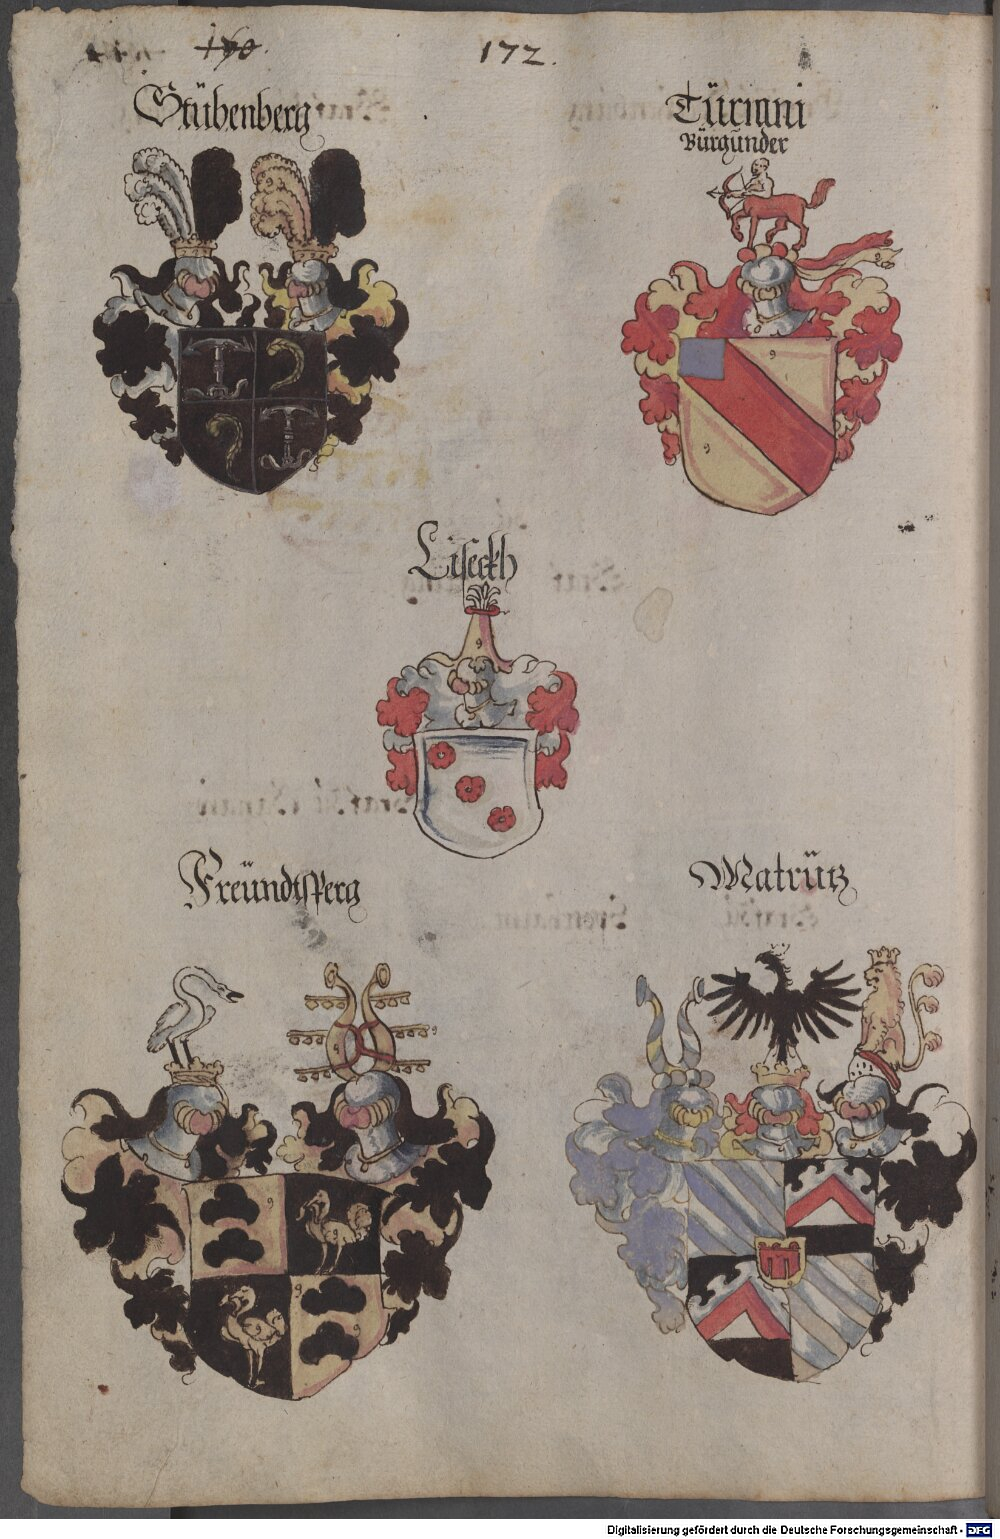 170.
172.
Stübenberg
Türnini
Bürgünder
Liseckh
Freündtsperg
Matrütz
Digitalisierung gefördert durch die Deutsche Forschungsgemeinschaft - DFG